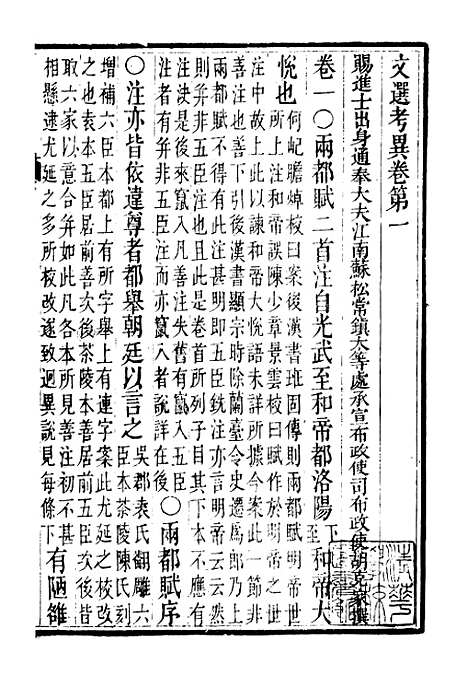 文選考異卷第一
賜進士出身通奉大夫江南蘇松常鎮太等處承宣布政使司布政使胡克家撰
卷一〇兩都賦二首注自光武至和帝都洛陽下至和帝大
悅也何屺瞻焯校曰案後漢書班固傳則兩都明帝世
所上注和帝誤陳少章景雲校曰賦作於明帝之世
注中故上此以諫和帝大悅語未詳所據今案此一節非
善注也善後漢書顯宗時除蘭臺令史遷爲郎乃上
兩都賦不得有此注甚明即五臣銑注亦言明帝云云然
則并非五臣注也此是卷首所列子目其下本不應有注
決是後來竄入凡善注失舊有竄入五臣者
有并非五臣注而亦竄入者說詳在後〇兩都賦序
〇注亦皆依違尊者都舉朝廷以言之吳郡袁氏翻雕六
臣本茶陵陳氏刻
增補六臣本都上有所字舉上有連字案此尤延之校改
之也袁本五臣居前善次後茶陵本善居前五臣次後皆
取六家以意合并如此凡各本所見善注初不甚
相懸逮尤延之多所校改遂致迥異說見每條下有陋雒